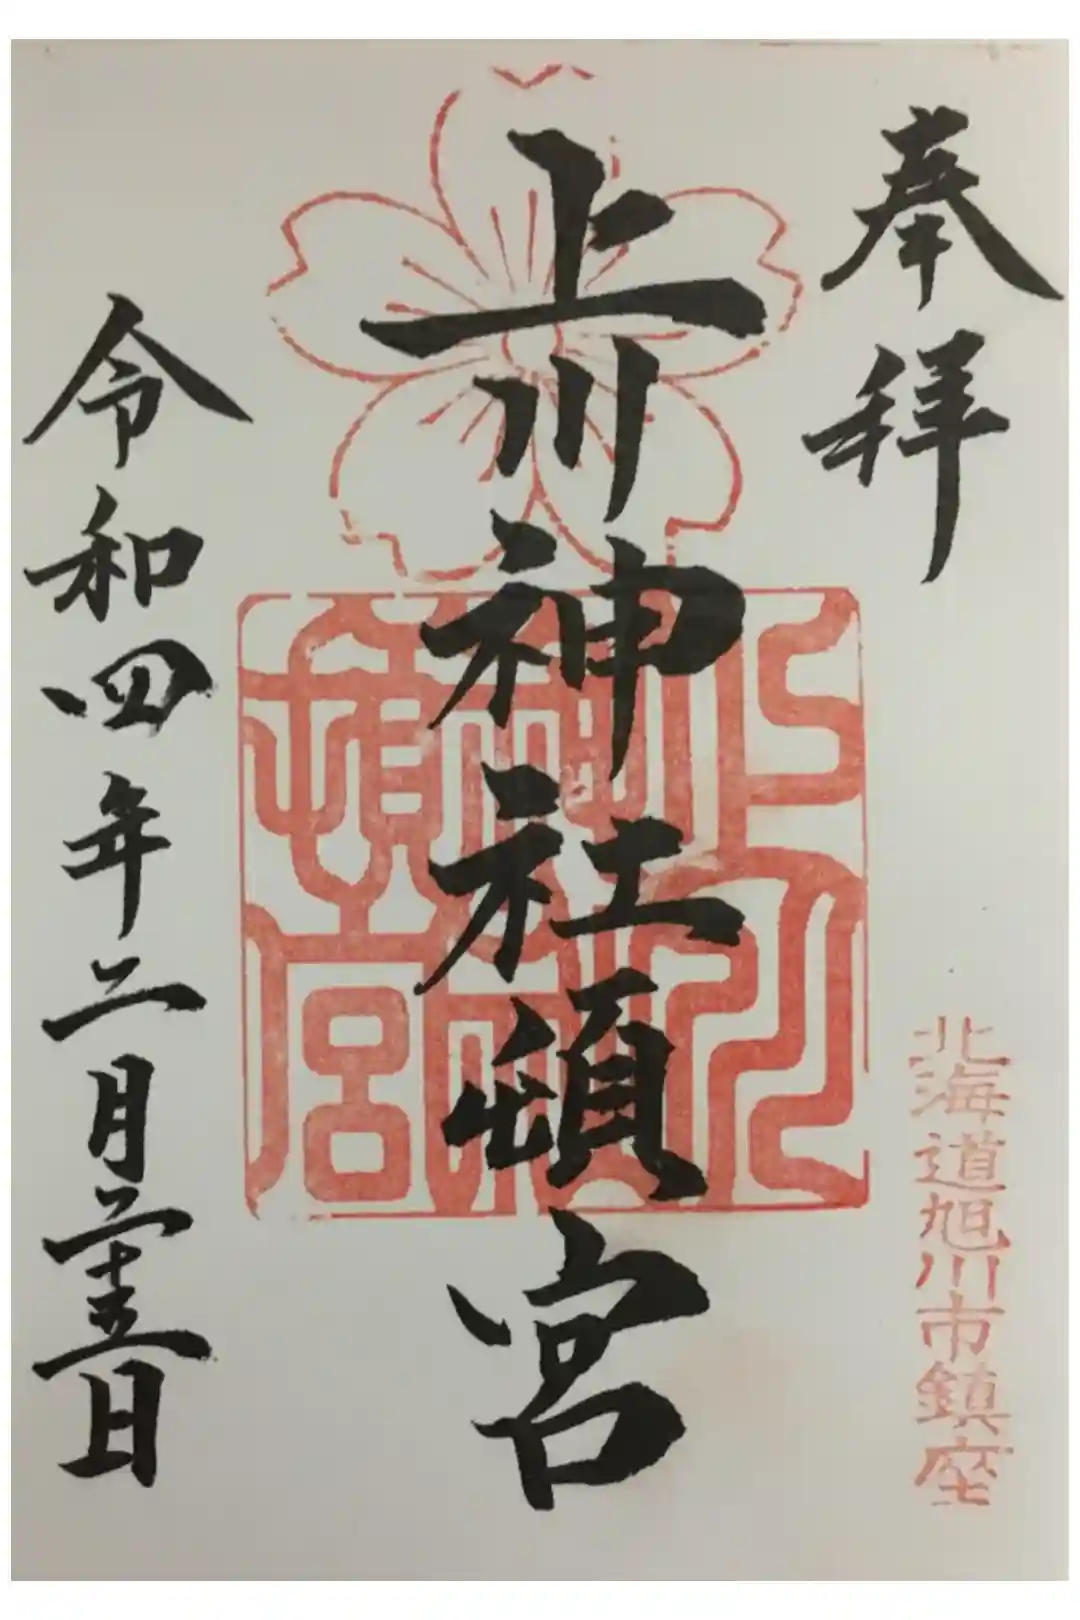 奉拝
北海道旭川市鎮座
上川神社頓宮
上川神社頓宮
令和四年二月二十五日